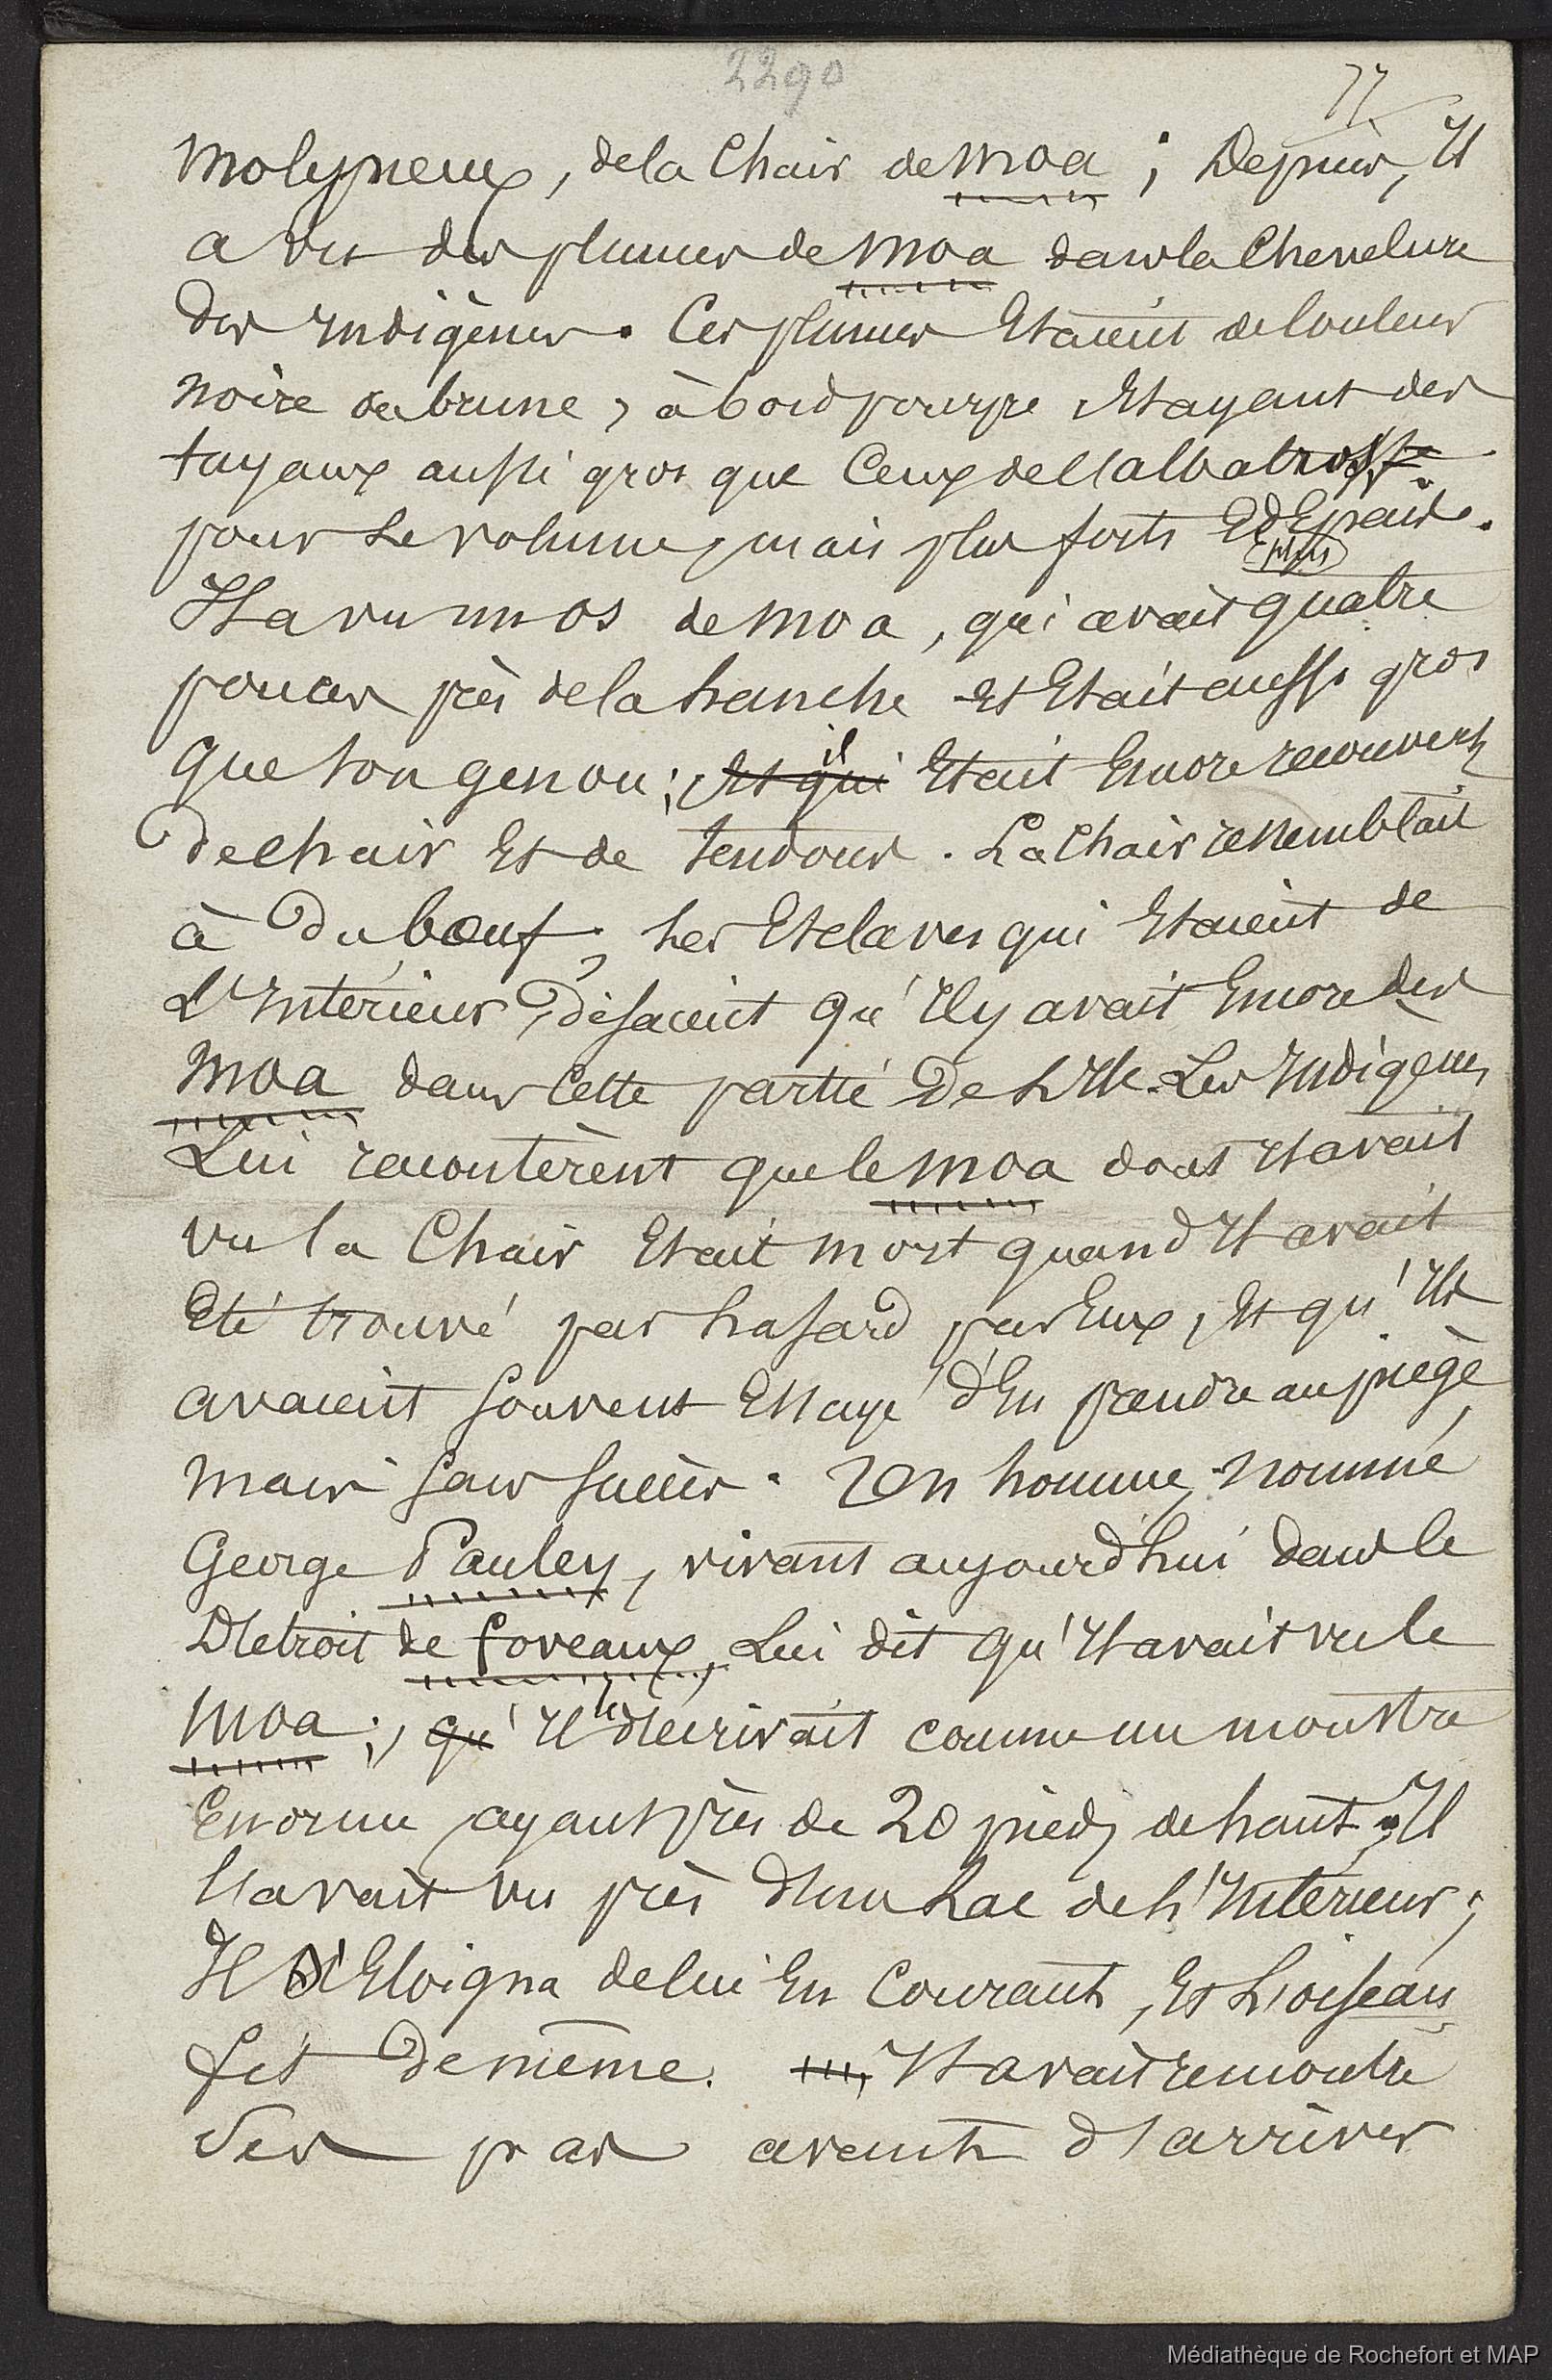 2290
77
Molyneux, de la Chair de moa ; Depuis, Il
a vu des plumes de moa dans la Chevelure
des Indigènes. Ces plumes Etaient de Couleur
noire ou brune, à bord pourpre Et ayant des
tuyaux aussi gros que Ceux de l'albatrosse.
pour le volume, mais plus forts Et Epais.
plus
Il a vu un os de moa, qui avait quatre
pouces près de la hanche Et Etait aussi gros
il
que son genou ; Et qui Etait Encore recouvert
de chair Et de tendons. La Chair ressemblait
à du bœuf ; les Esclaves qui Etaient de
L'Intérieur, disaient qu'Il y avait Encore des
moa dans Cette partie de L'Ile. Les Indigènes
Lui racontèrent que le moa dont Il avait
vu la Chair Etait mort quand Il avait
Eté trouvé par hasard par Eux, Et qu'Ils
avaient souvent Essayé d'En prendre au piège,
mais sans succès. Un homme, nommé
George Pauley, vivant aujourd'hui dans le
Détroit de Foveaux, Lui dit qu'Il avait vu le
le
moa ; qu'Il décrivait comme un monstre
Enorme, ayant près de 20 pieds de haut ; Il
l'avait vu près d'un Lac de L'Intérieur ;
Il s'Eloigna de lui En Courant, Et L'oiseau
fit de même. Il avait remontré
ses pas avant d'arriver
Médiathèque de Rochefort et MAP